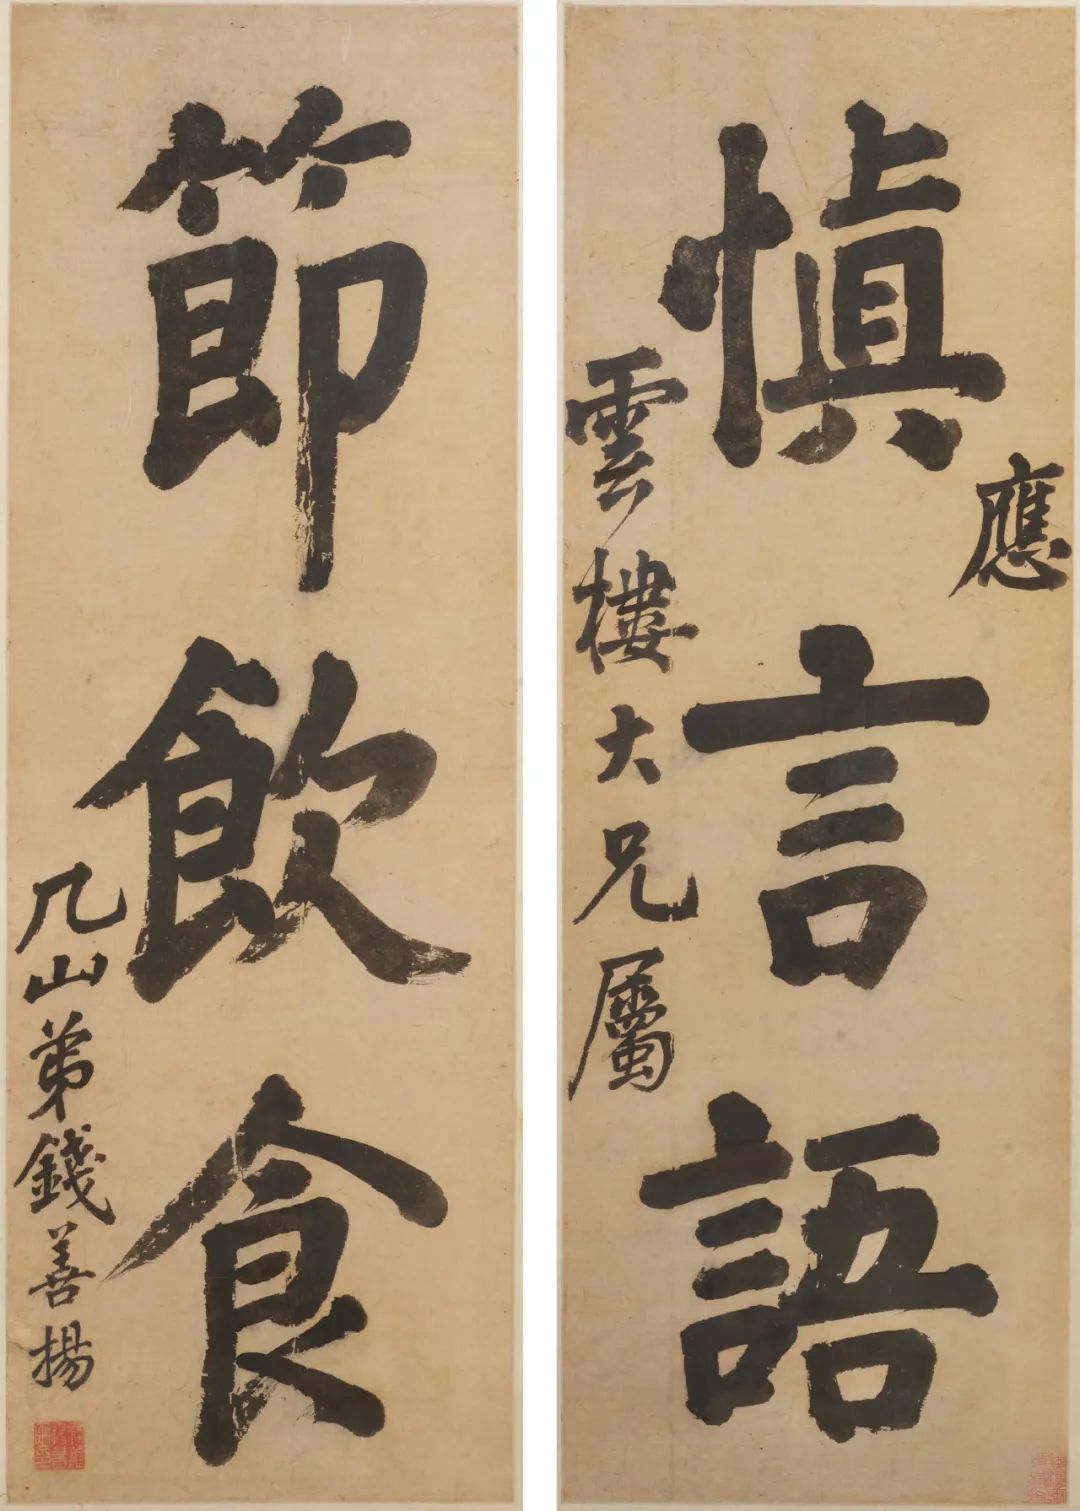 慎言語
應
雲樓大兄屬
節飲食
几山弟錢善揚